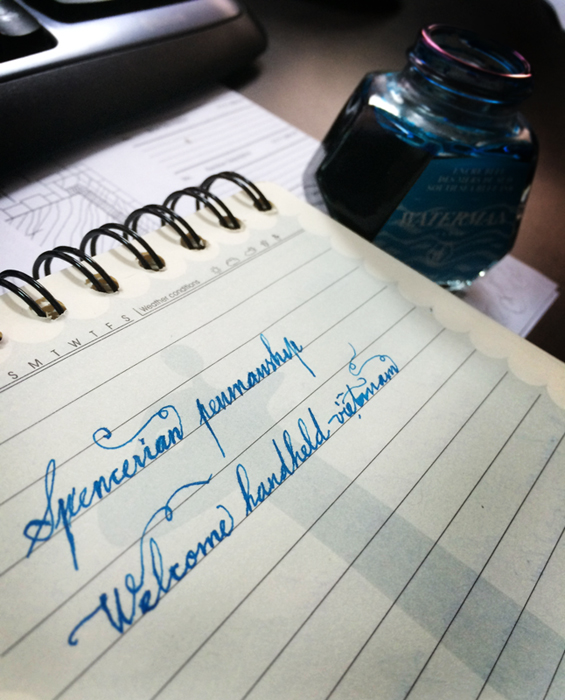 WATERMAN
S M T W T F S | Weather conditions
Spencerian penmanship
Welcome handheld việtnam